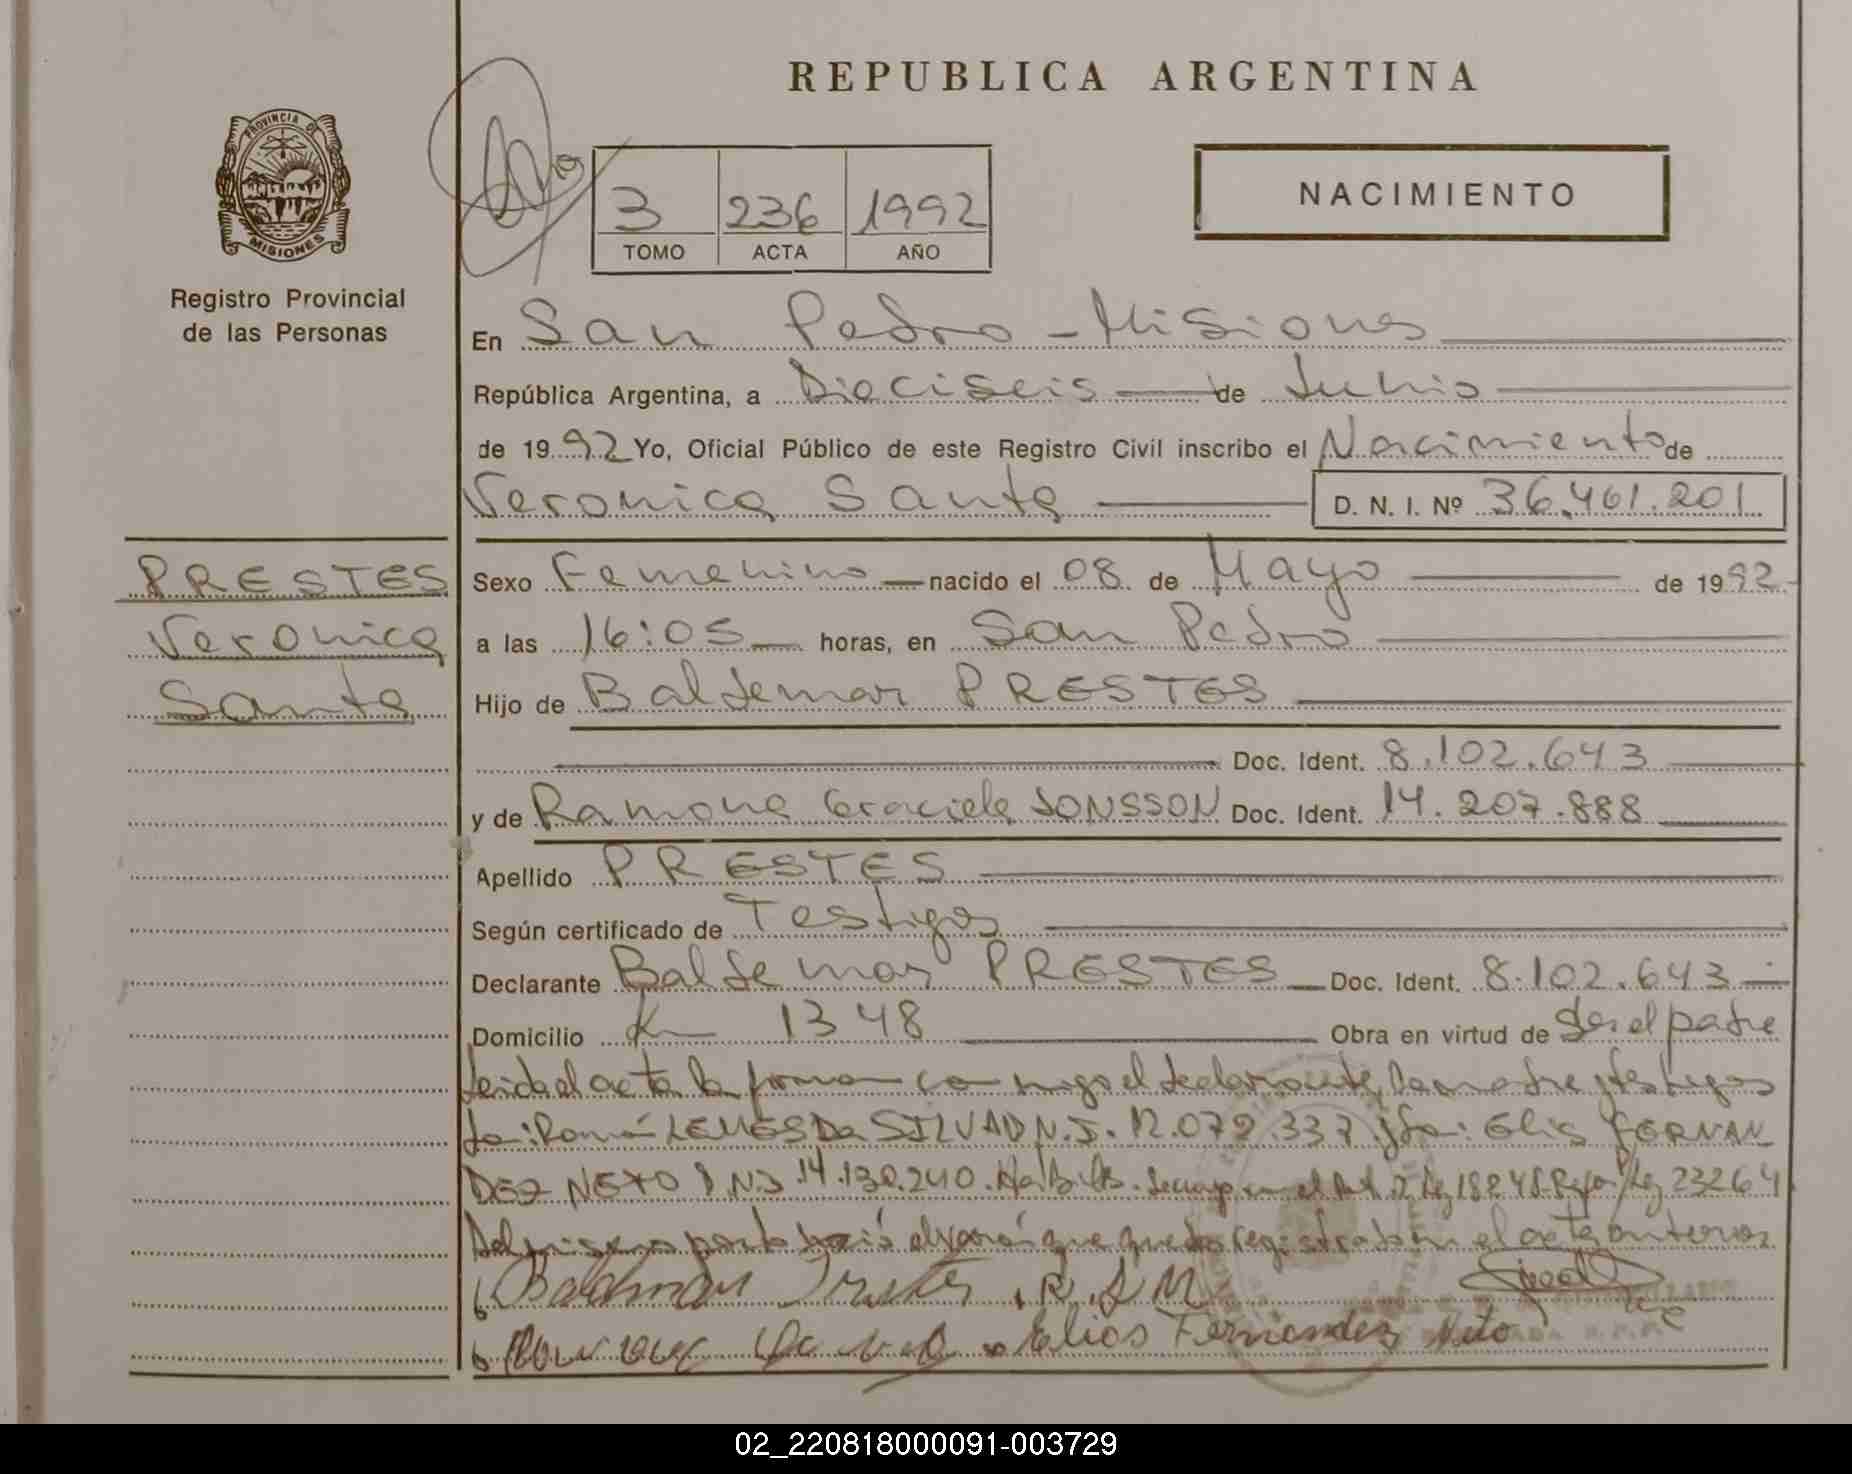 REPUBLICA ARGENTINA
PROVINCIA DE
MISIONES
Registro Provincial
de las Personas
3 236 1992
TOMO ACTA AÑO
NACIMIENTO
En San Pedro - Misiones
República Argentina, a Dieciseis de Junio
de 1992 Yo, Oficial Público de este Registro Civil inscribo el Nacimiento de
Veronica Santa D. N. I. Nº 36.461.201
PRESTES
Veronica
Santa
Sexo Femenino nacido el 08 de Mayo de 1992
a las 16:05 horas, en San Pedro
Hijo de Baldemar PRESTES
Doc. Ident. 8.102.643
y de Ramona Graciela JONSSON Doc. Ident. 14.207.888
Apellido PRESTES
Según certificado de Testigos
Declarante Baldemar PRESTES Doc. Ident. 8.102.643
Domicilio Km 1348 Obra en virtud de ser el padre
Leida el acta la firman conmigo el declarante, la madre y testigos
Román LEMES Da SILVA D.N.I. 12.072.337 y Elis FERNAN
DEZ NETO D.N.I 14.130.240. en el Art. Ley 18248 Ley 23264
Del mismo parto nació el varón que quedo registrado en el acta anterior
Baldemar Prestes R.J.M
Elios Fernandez Neto
02_220818000091-003729